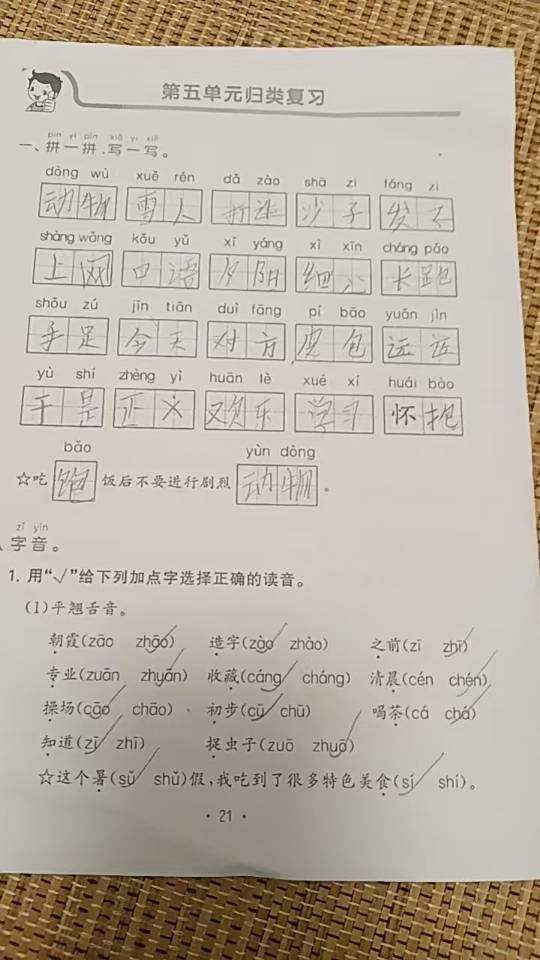 第五单元归类复习
pīn yi pīn xiě yi xiě
一、拼一拼,写一写。
dòng wù xuě rén dǎ zào shā zi fáng zi
动物 雪人 打 沙子 发子
shàng wǎng kǒu yǔ xī yáng xì xīn cháng pǎo
上网 口语 夕阳 细心 长跑
shǒu zú jīn tiān duì fāng pí bāo yuǎn jìn
手足 今天 对方 皮包 远近
yù shí zhèng yì huān lè xué xí huái bào
于是 正义 欢乐 学习 怀抱
bǎo yùn dòng
☆吃饱饭后不要进行剧烈动物。
zì yīn
字音。
1. 用“√”给下列加点字选择正确的读音。
(1)平翘舌音。
朝霞(zāo zhāo) 造字(zào zhào) 之前(zī zhī)
专业(zuān zhuān) 收藏(cáng cháng) 清晨(cén chén)
操场(cāo chāo) 初步(cū chū) 喝茶(cá chá)
知道(zī zhī) 捉虫子(zuō zhuō)
☆这个暑(sǔ shǔ)假,我吃到了很多特色美食(sí shí)。
• 21 •